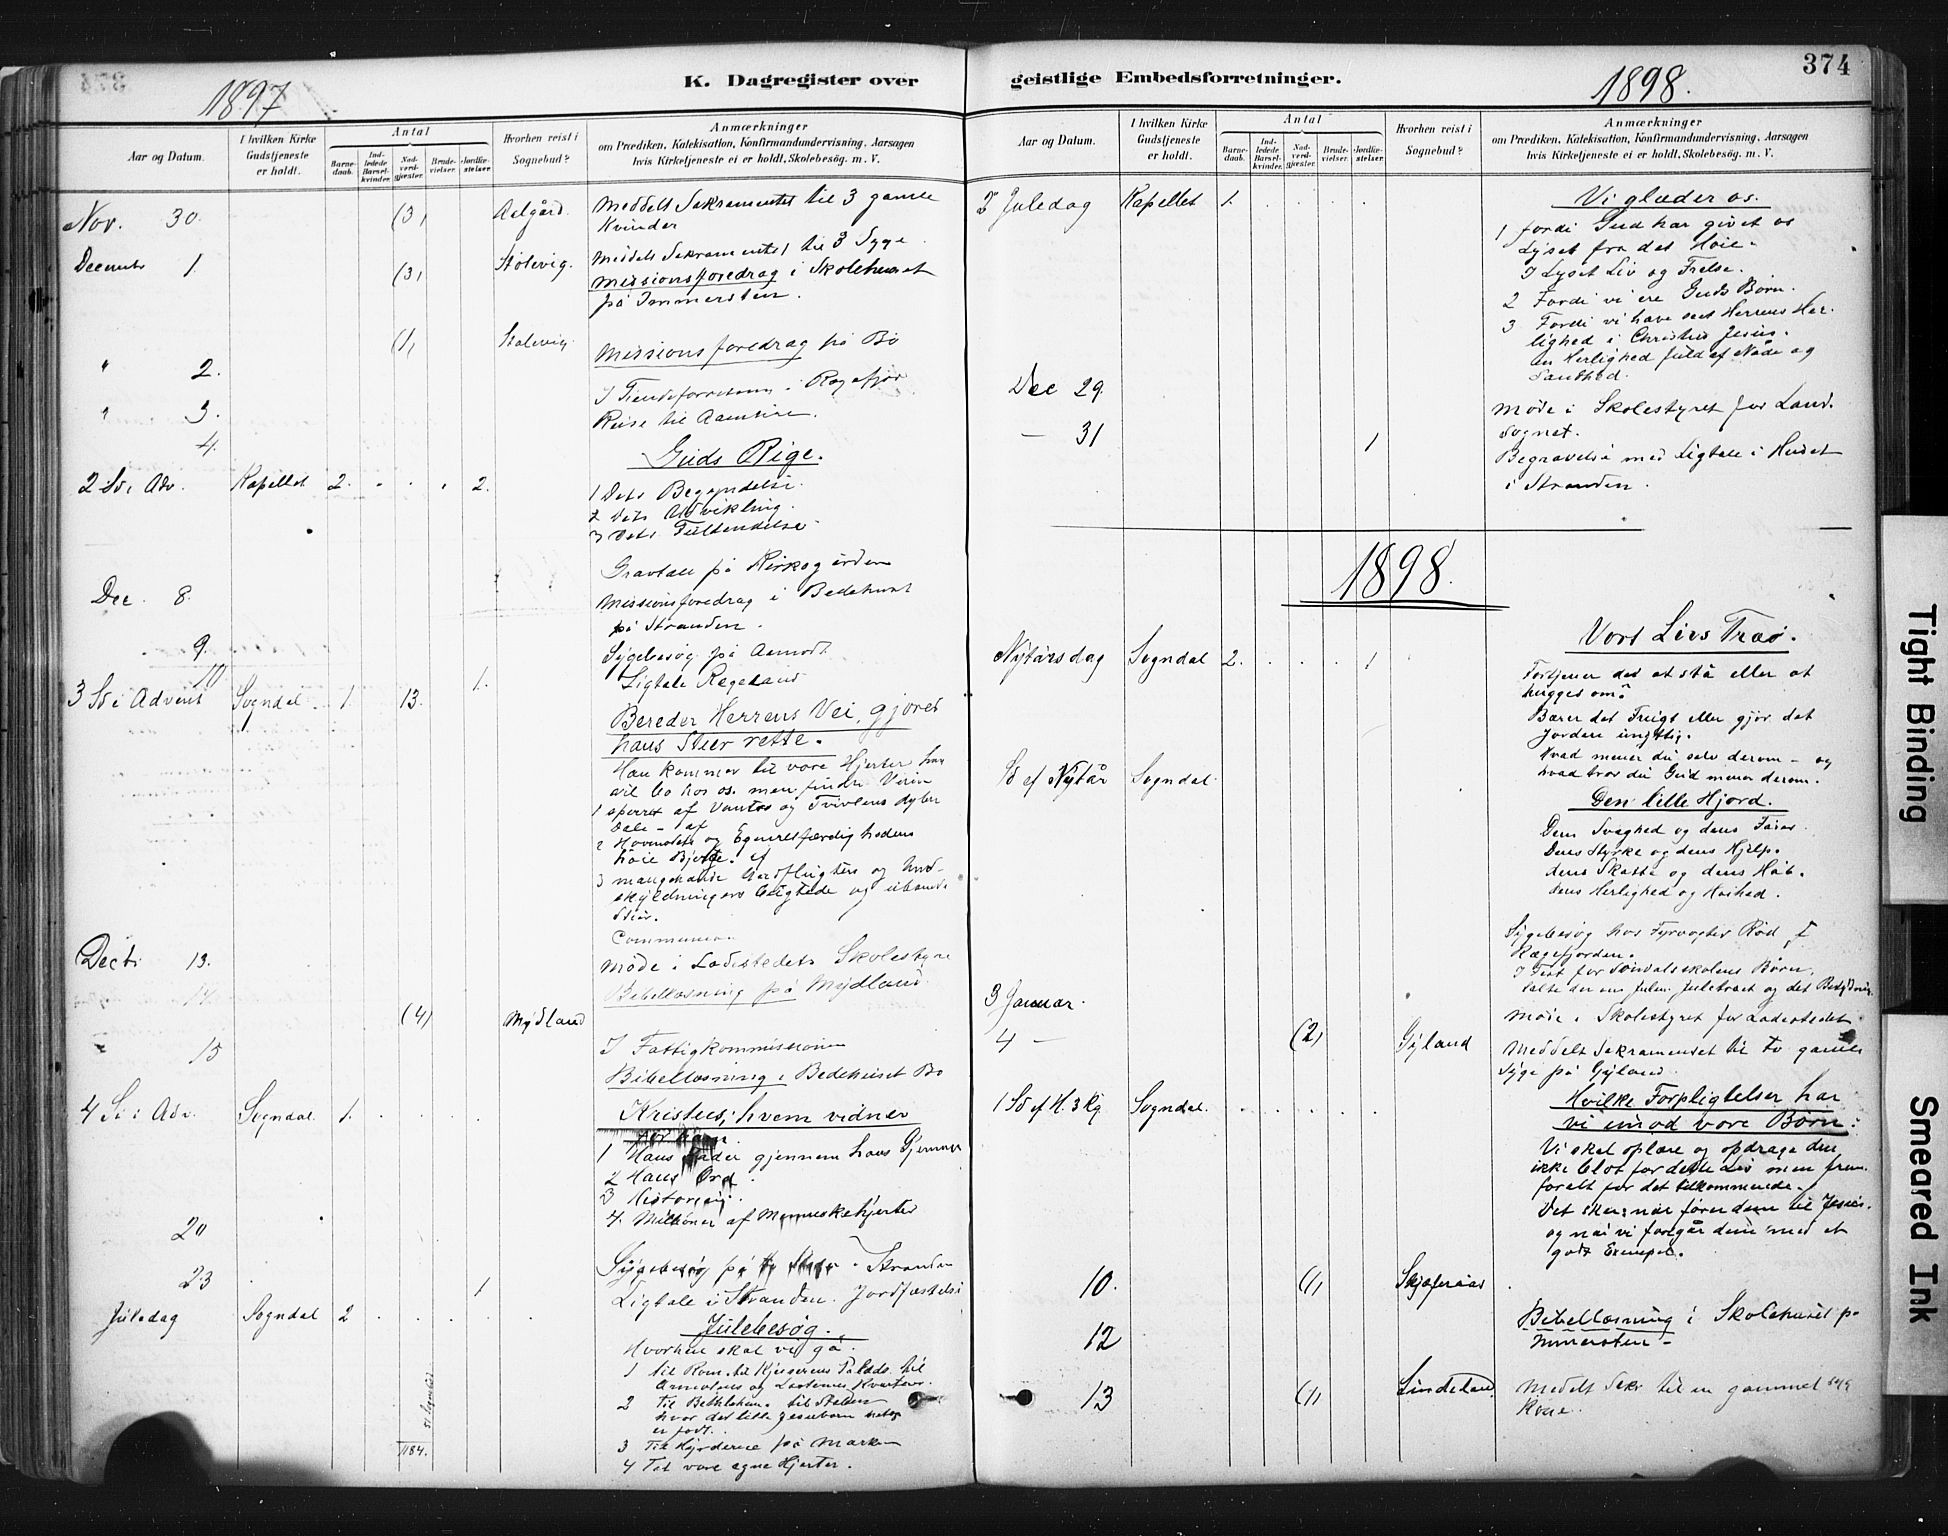 1897
K. Dagregister over
Aar og Datum.
I hvilken Kirke Gudstjeneste er holdt.
Antal
Barnedaab.
Indledede Barselkvinder.
Nadverdgjæster.
Brudevielser.
Jordfæstelser.
Hvorhen reist i Sognebud?
Anmærkninger
om Prædiken, Katekisation, Konfirmandundervisning, Aarsagen
hvis Kirketjeneste ei er holdt, Skolebesøg. m. V.
Nov. 30. (3) Aalgård. Meddelt Sakramentet til 3 gamle
Kvinder
1. (3) Meddelt Sakramentet til 3 Syge.
Missionsforedrag i Skolehuset
på Immersten.
" 2. (1) Missionsforedrag på Bø
" 3. I
Reise til
4.
Guds Rige.
2 Sd i Adv. Kapellet 2. . . . 2.
1 Dets Begyndelse.
2 Dets Udvikling.
3 Dets Fuldendelse
Dec. 8. Gravtale på Kirkegården
Missionsforedrag i Bedehuset
på Stranden.
9. Sygebesøg på Aamodt
10 1. Ligtale Regeland
3 Sd i Advent Sogndal 1. 13.
Bereder Herrens Vei, gjører
hans Stier rette.
Han kommer til vore Hjerter han
vil bo hos os. men finder Veien
1 sperret af Vantro og Tvivlens dybe
Dale - af
2 Hovmodets og Egenretfærdighedens
høie Bjerge. af
3 mangehånde Udflugters og Und-
skyldningers bugtede og ubanede
Stier.
Communion
Decbr 13. Møde i Ladestedets Skolestyre
14. Bibellæsning på Mydland.
(4) Mydland
15 I Fattigkommissionen
Bibellæsning i Bedehuset Bø
4 Sd i Adv. Sogndal 1.
Kristus; hvem vidner
om ham.
1 Hans Fader gjennem hans Gjerninger
2 Hans Ord.
3 Historien.
4. Millioner af Menneskehjerter
20 Sygebesøg på Stranden
23 1 Ligtale i Stranden. Jordfæstelse
Juledag Sogndal 2
Julebesøg.
Hvorhen skal vi gå.
1 til Rom, til Kejserens Palads til
2 Til Bethlehem. til Stalden
hvor det lille Jesusbarn netop
er født.
3 Til Hyrderne på Marken
4 Til vore egne Hjerter.
1184.
geistlige Embedsforretninger.
1898.
374
Aar og Datum.
I hvilken Kirke Gudstjeneste er holdt.
Antal
Barnedaab.
Indledede Barselkvinder.
Nadverdgjæster.
Brudevielser.
Jordfæstelser.
Hvorhen reist i Sognebud?
Anmærkninger
om Prædiken, Katekisation, Konfirmandundervisning, Aarsagen
hvis Kirketjeneste ei er holdt, Skolebesøg. m. V.
2 Juledag Kapellet 1.
Vi glæder os.
1 fordi Gud har givet os
Lyset fra det Høie.
I Lyset Liv og Frelse.
2 Fordi vi ere Guds Børn.
3 Fordi vi have seet Herrens Her-
lighed i Christus Jesus.
en Herlighed fuld af Nåde og
Sandhed.
Dec 29. Møde i Skolestyret for Land-
sognet.
— 31 1 Begravelse med Ligtale i Huset
i Stranden.
1898.
Nytårsdag Sogndal 2. 1
Vort Livs Træ.
Fortjener det at stå eller at
hugges om?
Bærer det Frugt eller gjør det
Jorden unyttig.
Hvad mener du selv derom - og
hvad tror du Gud mener derom.
Sd ef Nytår Sogndal.
Den lille Hjord.
Dens Svaghed og dens Farer.
Dens Styrke og dens Hjælp.
dens Skatte og dens Håb.
dens Herlighed og Høihed.
Sygebesøg hos Fyrvogter Rød i
Rægefjorden.
I Fest for Søndalsskolens Børn.
talte der om Julen. Juletræet og det Betydning.
3 Januar. Møde i Skolestyret for Ladestedet
4 — (2) Gyland Meddelt Sakramentet til to gamle
Syge på Gyland.
1 Sd ef H. 3 Kg Sogndal.
Hvilke Forpligtelser har
vi imod vore Børn:
Vi skal oplære og opdrage dem
ikke blot for dette Liv men frem-
foralt for det tilkommende.
Det sker: når fører dem til Jesus.
og når vi foregår dem med et
godt Exempel.
10. (1)
12 Bibellæsning i Skolehuset på
Immersten -
13 (1) Lindeland Meddelt Sakr til en gammel syg
Kone.
Tight Binding
Smeared Ink